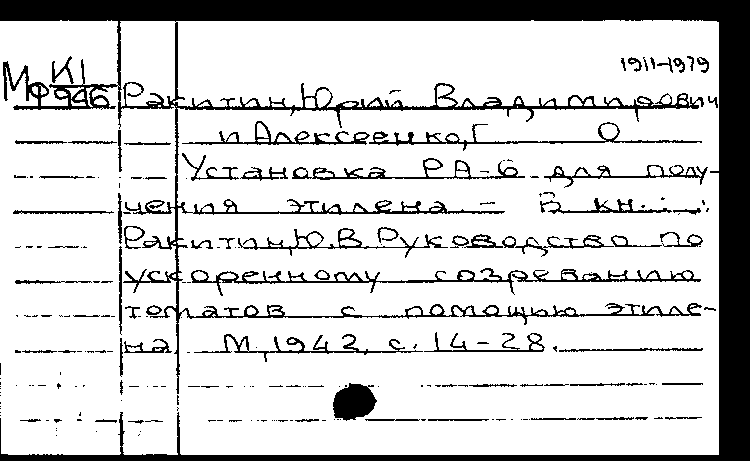 1911-1979
МФ К1/946
Ракитин, Юрий Владимирович
и Алексеенко, Г О
Установка РА-6 для полу-
чения этилена. – В кн.:
Ракитин, Ю.В. Руководство по
ускоренному созреванию
томатов с помощью этиле-
на М, 1942, с. 14-28.